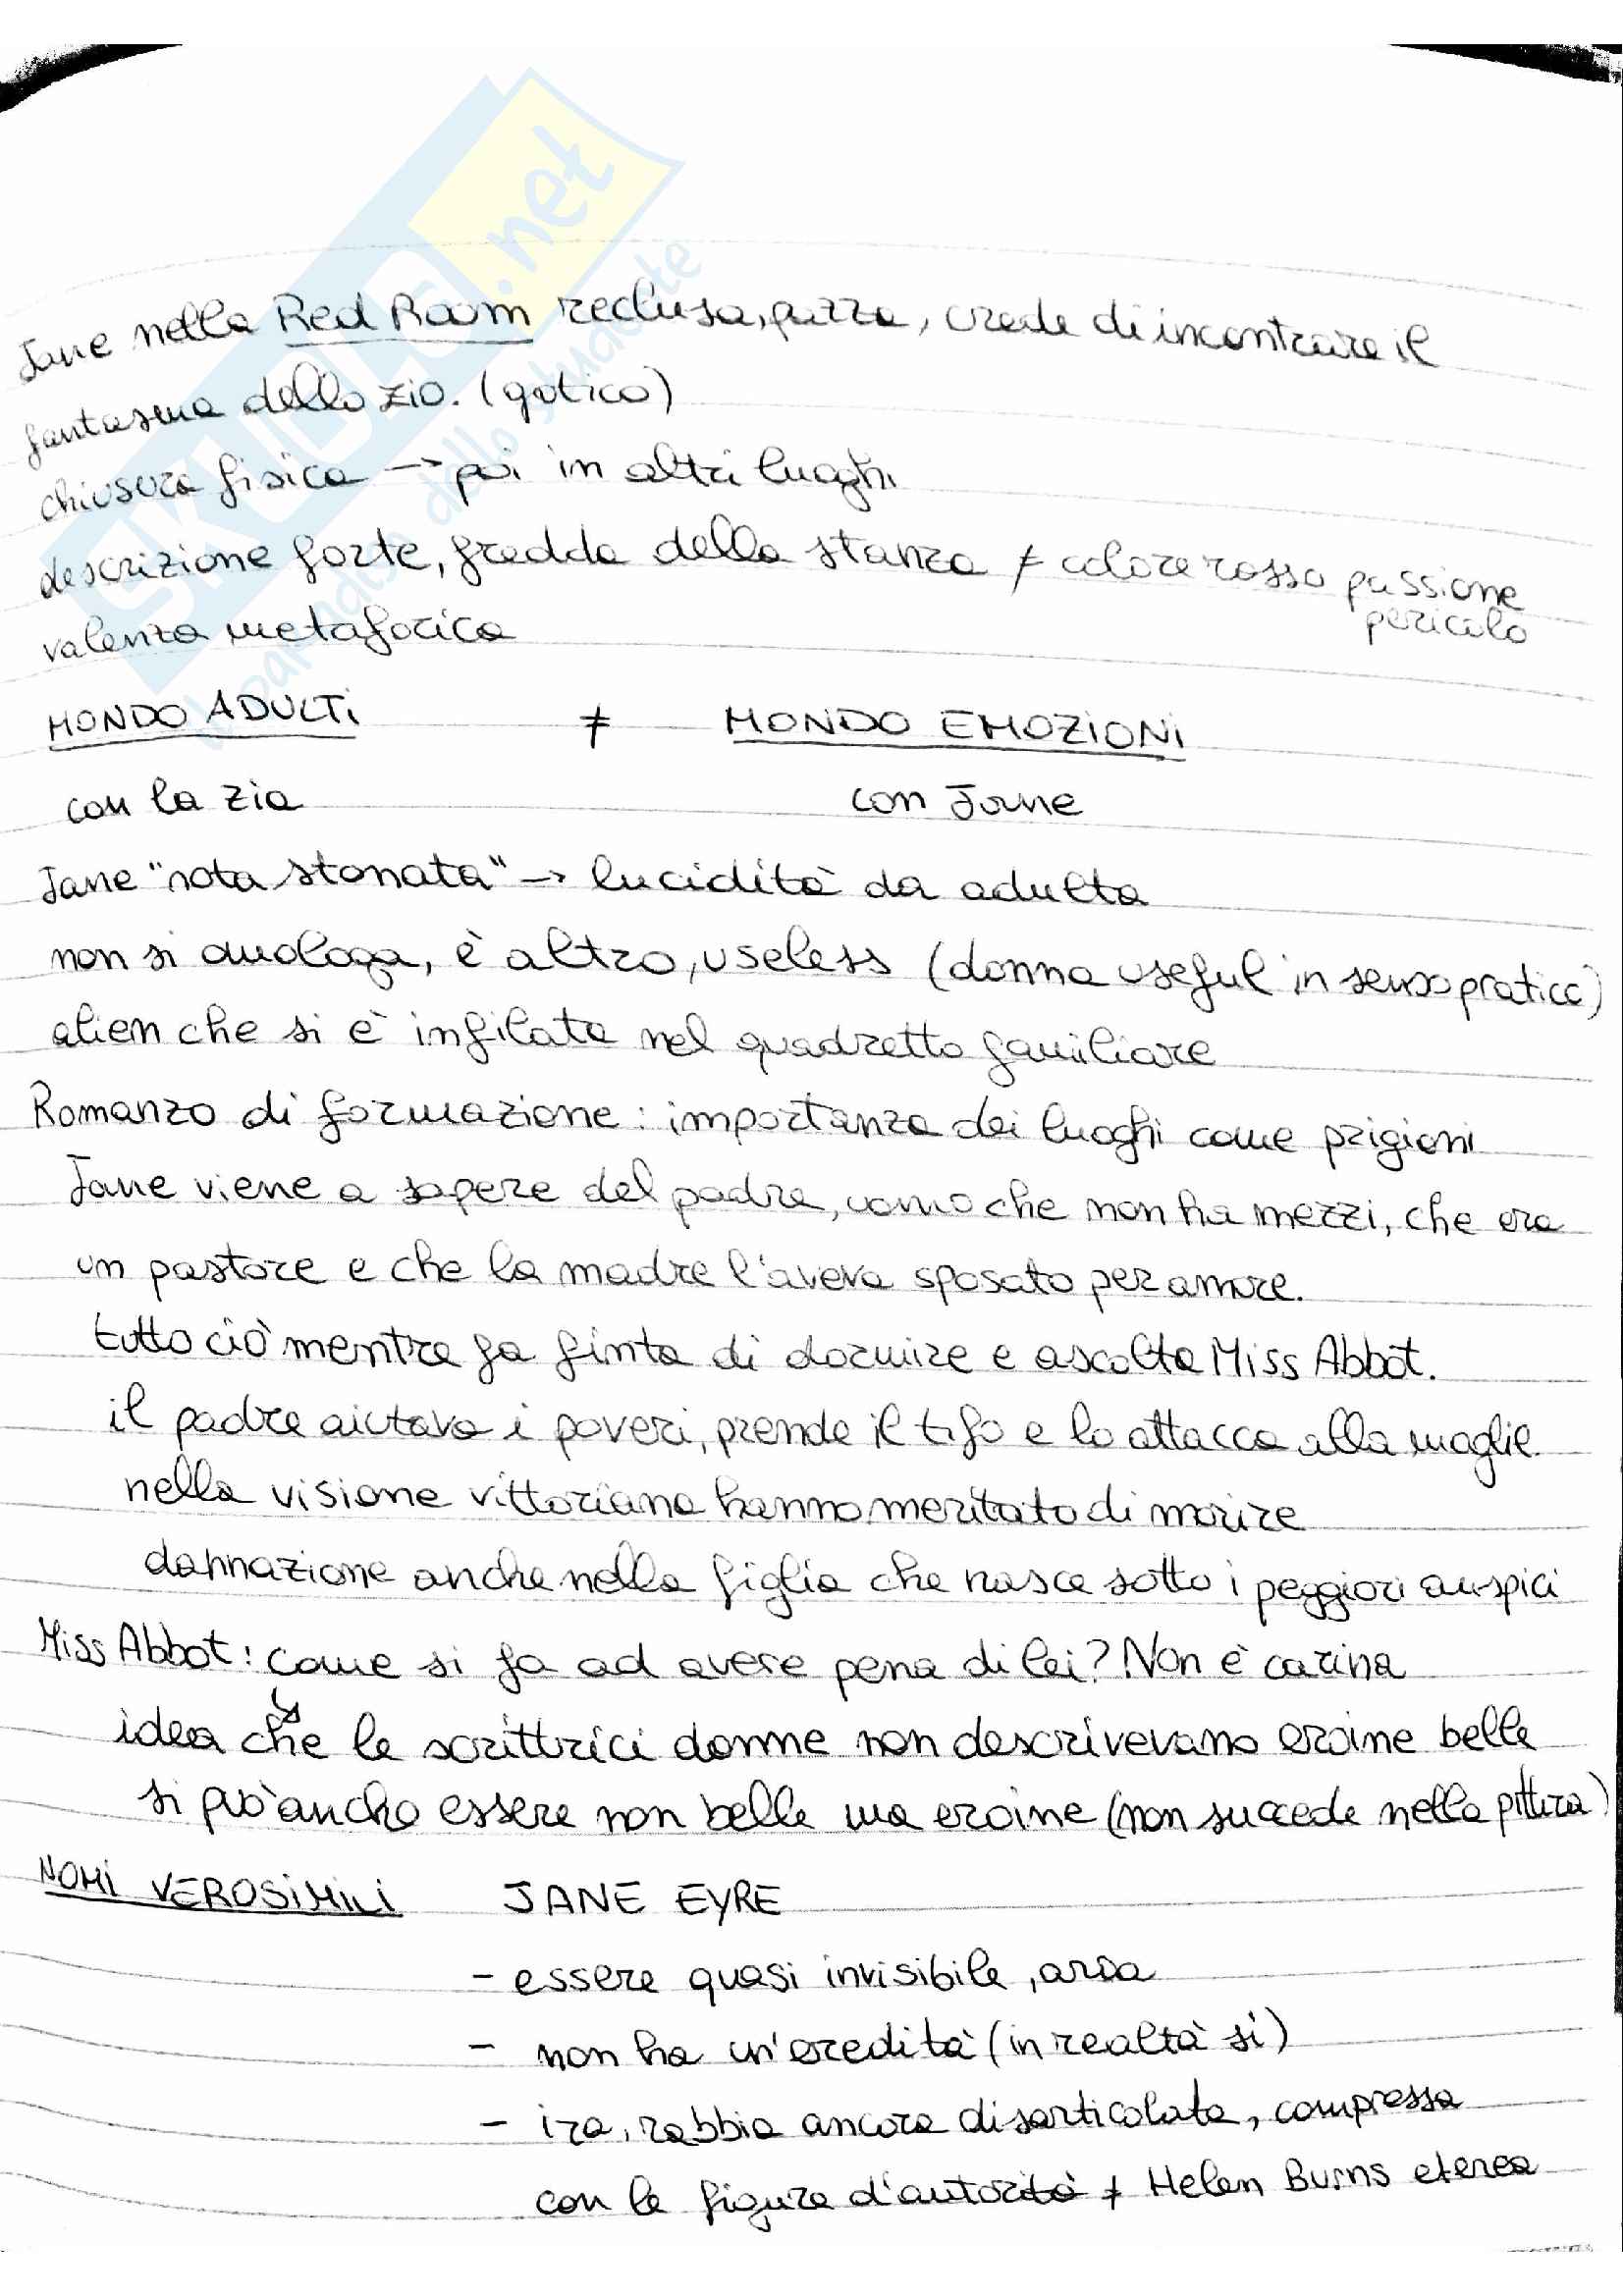 SKUOLA.net
il paradiso dello studente
Jane nella Red Room reclusa, pazza, crede di incontrare il
fantasma dello zio. (gotico)
chiusura fisica → poi in altri luoghi
descrizione forte, fredda della stanza ≠ colore rosso passione
pericolo
valenza metaforica
MONDO ADULTI ≠ MONDO EMOZIONI
con la zia con Jane
Jane "nota stonata" → lucidità da adulta
non si omologa, è altro, useless (donna useful in senso pratico)
alien che si è infilata nel quadretto familiare
Romanzo di formazione: importanza dei luoghi come prigioni
Jane viene a sapere del padre, uomo che non ha mezzi, che era
un pastore e che la madre l'aveva sposato per amore.
tutto ciò mentre fa finta di dormire e ascolta Miss Abbot.
il padre aiutava i poveri, prende il tifo e lo attacca alla moglie
nella visione vittoriana hanno meritato di morire
dannazione anche nella figlia che nasce sotto i peggiori auspici
Miss Abbot: come si fa ad avere pena di lei? Non è carina
idea che le scrittrici donne non descrivevano eroine belle
si può anche essere non belle ma eroine (non succede nella pittura)
NOMI VEROSIMILI JANE EYRE
- essere quasi invisibile, aria
- non ha un'eredità (in realtà si)
- ira, rabbia ancora disarticolata, compressa
con le figure d'autorità ≠ Helen Burns eterea